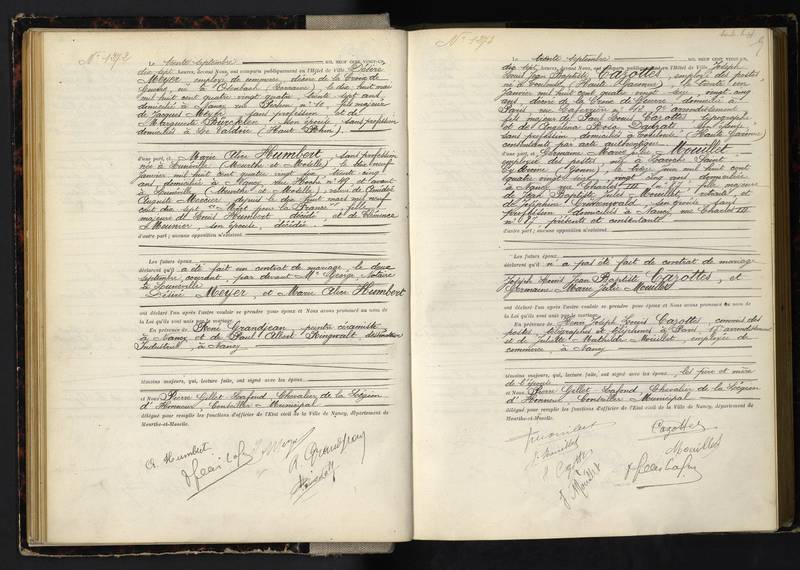 N° 1272
Le trente septembre MIL NEUF CENT VINGT-UN,
dix sept heures, devant Nous, ont comparu publiquement en l'Hôtel de Ville, Désiré
Meyer, employé de commerce, décoré de la Croix de
Guerre, né à (Lorraine), le dix huit mai
mil huit cent quatre vingt quatre, trente sept ans,
domicilié à Nancy, rue n° 10, fils majeur
de Jacques Meyer, sans profession et de
Marguerite son épouse, sans profession
domiciliés à (Haut Rhin),
d'une part, et Marie Alice Humbert, sans profession
née à Lunéville (Meurthe et Moselle) le dix neuf
janvier mil huit cent quatre vingt six, trente cinq
ans, domiciliée à Nancy, rue Hoche n° 49 et avant
à Lunéville (Meurthe et Moselle), veuve de
Auguste Mercier depuis le dix huit mars mil neuf
cent dix sept "Mort pour la France", fille
majeure de Louis Humbert décédé, et de Clémence
Meunier, son épouse, décédée
d'autre part ; aucune opposition n'existant.
Les futurs époux
déclarent qu'il a été fait un contrat de mariage, le deux
septembre courant, par devant Me George, Notaire
à Lunéville
Désiré Meyer, et Marie Alice Humbert
ont déclaré l'un après l'autre vouloir se prendre pour époux et Nous avons prononcé au nom de
la Loi qu'ils sont unis par le mariage.
En présence de René Grandjean, peintre céramiste,
à Nancy et de Paul Albert
Industriel, à Nancy
témoins majeurs, qui, lecture faite, ont signé avec les époux
et Nous Pierre Gillet Lafond, Chevalier de la Légion
d'Honneur, Conseiller Municipal
délégué pour remplir les fonctions d'officier de l'Etat civil de la Ville de Nancy, département de
Meurthe-et-Moselle.
A. Humbert
R. Grandjean
N° 1273
Le trente septembre MIL NEUF CENT VINGT-UN,
dix sept heures, devant Nous, ont comparu publiquement en l'Hôtel de Ville, Joseph
Louis Jean Baptiste Cazottes, employé des postes
né à Toulouse (Haute Garonne), le trente un
janvier mil huit cent quatre vingt seize, vingt cinq
ans, décoré de la Croix de Guerre, domicilié à
Paris, rue n° 12, arrondissement
fils majeur de Paul Louis Cazottes, typographe
et de Angelina Rosa son épouse,
sans profession, domiciliés à Toulouse (Haute Garonne)
consentants par acte authentique.
d'une part, et Germaine Marie Julie Mouillet
employée des postes, née à Laroche Saint
Cydroine (Yonne), le treize juin mil huit cent
quatre vingt vingt ans, domiciliée
à Nancy, rue Charles III n° 87, fille majeure
de Jean Baptiste Jules Mouillet, retraité et
de Joséphine son épouse, sans
profession, domiciliés à Nancy, rue Charles III
n° 87, présents et consentants
d'autre part ; aucune opposition n'existant.
Les futurs époux
déclarent qu'il n'a pas été fait de contrat de mariage
Joseph Louis Jean Baptiste Cazottes, et
Germaine Marie Julie Mouillet
ont déclaré l'un après l'autre vouloir se prendre pour époux et Nous avons prononcé au nom de
la Loi qu'ils sont unis par le mariage.
En présence de Henri Joseph Louis Cazottes, commis des
postes, télégraphes et téléphones à Paris arrondissement
et de Juliette Mathilde Mouillet, employée de
commerce, à Nancy
témoins majeurs, qui, lecture faite, ont signé avec les époux, les père et mère
de l'épouse
et Nous Pierre Gillet Lafond, Chevalier de la Légion
d'Honneur, Conseiller Municipal
délégué pour remplir les fonctions d'officier de l'Etat civil de la Ville de Nancy, département de
Meurthe-et-Moselle.
Cazottes
Mouillet
J. Mouillet